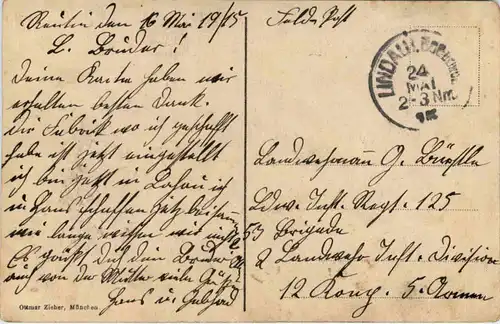 Reutin den 16 Mai 1915
L. Bruder!
Deine Karte haben wir
erhalten besten Dank.
Die Fabrik wo ich geschafft
habe ist jetzt eingestellt
ich bin jetzt in
wie lange wissen wir nicht
Es grüßt Dich dein Bruder
auch von der Mutter viele Grüße
Hans u. Gebhard
Ottmar Zieher, München
Feldpost
LINDAU i. BODENSEE
24
MAI
2-3 Nm.
Landwehrmann G.
Ldw. Inft. Regt. 125
53 Brigade
2 Landwehr Inft. Division
12 Komp. 5. Armee